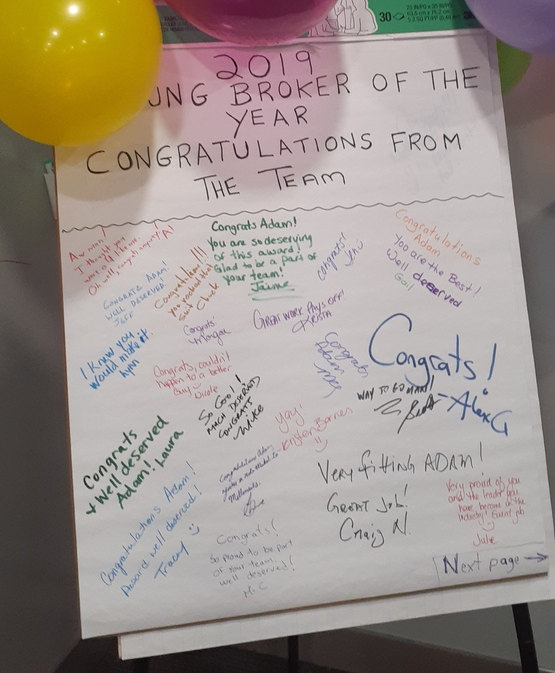 30
2019
UNG BROKER OF THE
YEAR
CONGRATULATIONS FROM
THE TEAM
Aw man!
I thought you
Congrats Adam!
You are so deserving
of this award!
Glad to be a part of
your team!
Jaime
congrats!
Congratulations
Adam
You are the Best!
Well deserved
Gail
CONGRATS ADAM!
WELL DESERVED
JEFF
Congratulations!!!
you rocked that
suit
Congrats!
GREAT WORK PAYS OFF!
KRISTA
I knew you
would make it.
Lynn
Congrats, couldn't
happen to a better
Guy
Nicole
SO COOL!
MUCH DESERVED
CONGRATS
Mike
Congrats
Adam
Congrats!
-Alix G
WAY TO GO MAN!
yay!
Kristen Barnes
Congrats
+ Well deserved
Adam! Laura
Very fitting ADAM!
GREAT Job!
Craig N.
Very proud of you
and the leader you
have become in the
industry! Great job
Julie
Congratulations Adam!
Award well deserved!
Tracy
Congrats!
So proud to be part
of your team.
well deserved!
Next page →